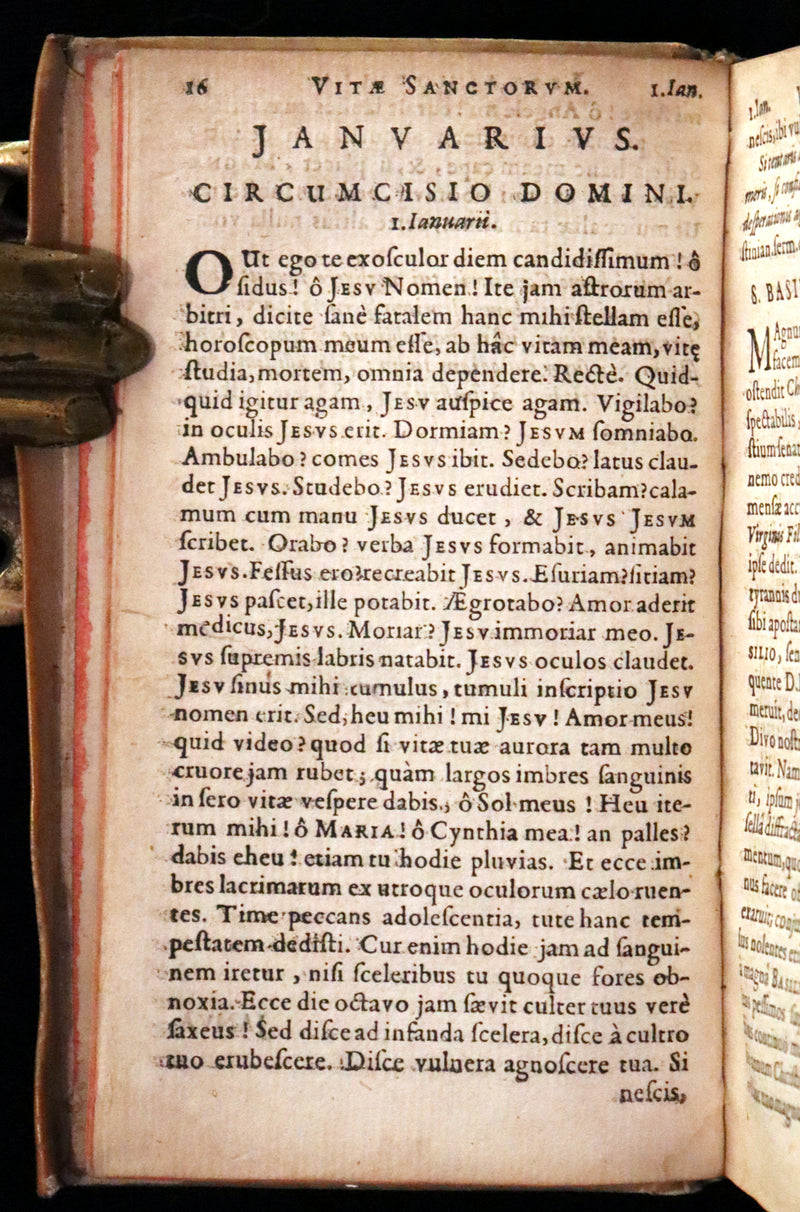 16 VITÆ SANCTORVM. 1.Ian.
JANVARIVS.
CIRCUMCISIO DOMINI.
1.Ianuarii.
OUt ego te exoſculor diem candidiſſimum ! ô
ſidus ! ô JESV Nomen ! Ite jam aſtrorum ar-
bitri, dicite ſanè fatalem hanc mihi ſtellam eſſe,
horoſcopum meum eſſe, ab hâc vitam meam, vitę
ſtudia, mortem, omnia dependere. Rectè. Quid-
quid igitur agam, JESV auſpice agam. Vigilabo?
in oculis JESVS erit. Dormiam ? JESVM ſomniabo.
Ambulabo ? comes JESVS ibit. Sedebo? latus clau-
det JESVS. Studebo ? JESVS erudiet. Scribam? cala-
mum cum manu JESVS ducet, & JESVS JESVM
ſcribet. Orabo ? verba JESVS formabit, animabit
JESVS. Feſſus ero? recreabit JESVS. Eſuriam? ſitiam?
JESVS paſcet, ille potabit. Ægrotabo? Amor aderit
medicus, JESVS. Moriar ? JESV immoriar meo. JE-
SVS ſupremis labris natabit. JESVS oculos claudet.
JESV ſinus mihi tumulus, tumuli inſcriptio JESV
nomen erit. Sed, heu mihi ! mi JESV ! Amor meus!
quid video? quod ſi vitæ tuæ aurora tam multo
cruore jam rubet; quàm largos imbres ſanguinis
in ſero vitæ veſpere dabis, ô Sol meus ! Heu ite-
rum mihi ! ô MARIA ! ô Cynthia mea ! an palles?
dabis eheu ! etiam tu hodie pluvias. Et ecce im-
bres lacrimarum ex utroque oculorum cælo ruen-
tes. Time peccans adoleſcentia, tute hanc tem-
peſtatem dediſti. Cur enim hodie jam ad ſangui-
nem iretur, niſi ſceleribus tu quoque fores ob-
noxia. Ecce die octavo jam ſævit culter tuus verè
ſaxeus ! Sed diſce ad infanda ſcelera, diſce à cultro
tuo erubeſcere. Diſce vulnera agnoſcere tua. Si
neſcis,
1.Ian.
S. BASI